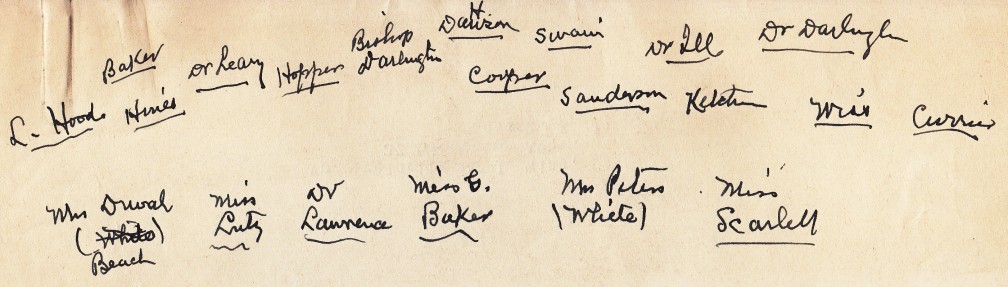 Baker Dr Leary Hopper Bishop Darlington Dawson Swain Dr Ill Dr Darlington
L. Hoods Hines Cooper Sanderson Ketchum Wise Currie
Mrs Duval Miss Lutz Dr Lawrence Miss G. Baker Mrs Peters (White) Miss Scarlett
(White)
Beach